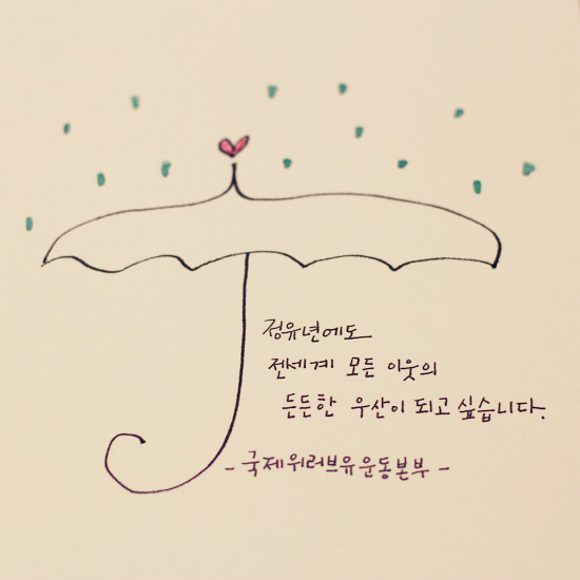 정유년에도
전세계 모든 이웃의
든든한 우산이 되고 싶습니다.
- 국제위러브유운동본부 -